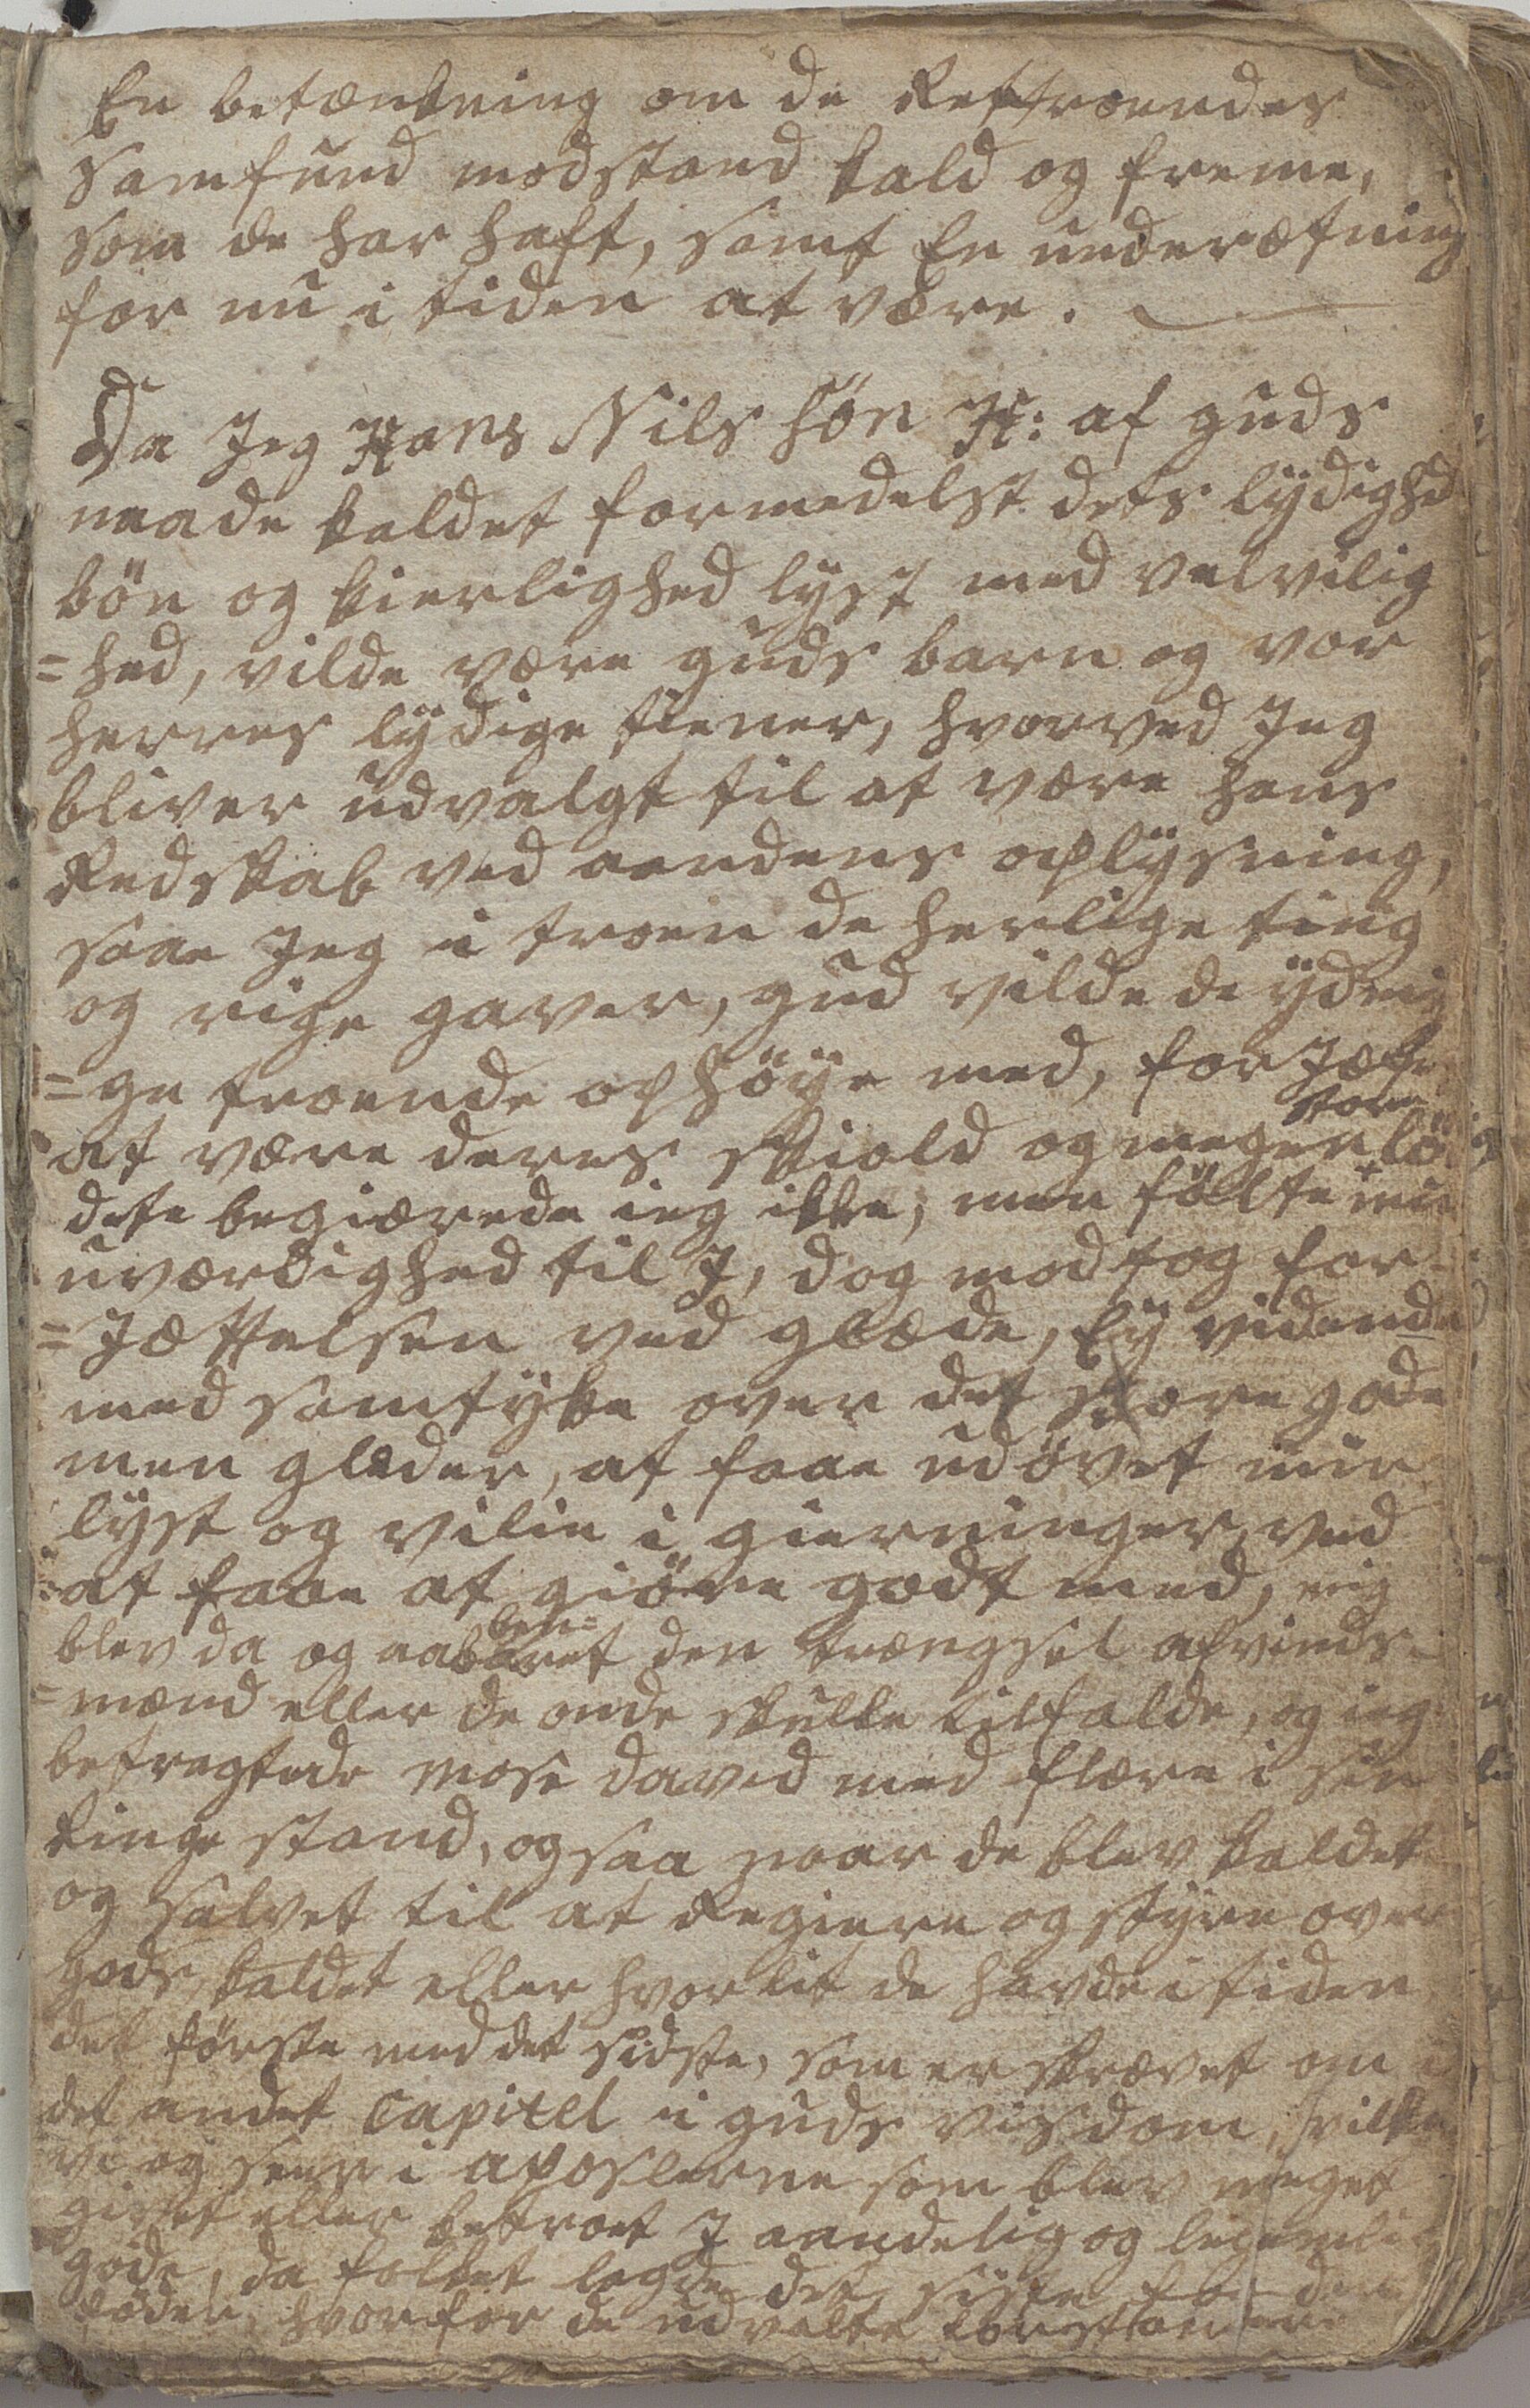 En betænkning om de Rettroendes
samfund modstand kald og freme,
som de har haft, samt En underætning
for nu i tiden at være.
Da Jeg Hans Nils søn H: af guds
naade kaldet formedelst dets lydighed
bön og kierlighed lyst med velvilig
=hed, vilde være guds barn og vor
herres lydige tiener, hvorved Jeg
bliver udvalgt til at være hans
Redskab ved aandens oplysning,
saae Jeg i troen de herlige ting
og rige gaver, gud vilde de ydmy
=ge troende ophöye med, for Jætte
at være deres skiold og megen store lö
dete begiærede ieg ikke, men fölte min
uværdighed til J, dog modtog for-
=Jættelsen ved glæde, Ey vidende
med samtykke over det store gode
men glæder, at faae udövet min
lyst og vilie i gierninger, ved
at faae at giöre godt med, mig
blev da og aabenbaret den trængsel afvinds-
=mænd eller de onde skulle tilfalde, og ieg
betragtede Mose David med flere i sin
ringe stand, og saa naar de blev kaldet
og salvet til at Regiere og styre over
gods kaldet eller hvor lit de havde i tiden
det förste med det sidste, som er skrevet om i
det andet Capitel i guds visdom, hvilke
vi og seer i apostlerne som blev meget
givet eller betroet J aandelig og legemlig
gode, da folket lagde det siste for den
föder, hvorfor de udvalte